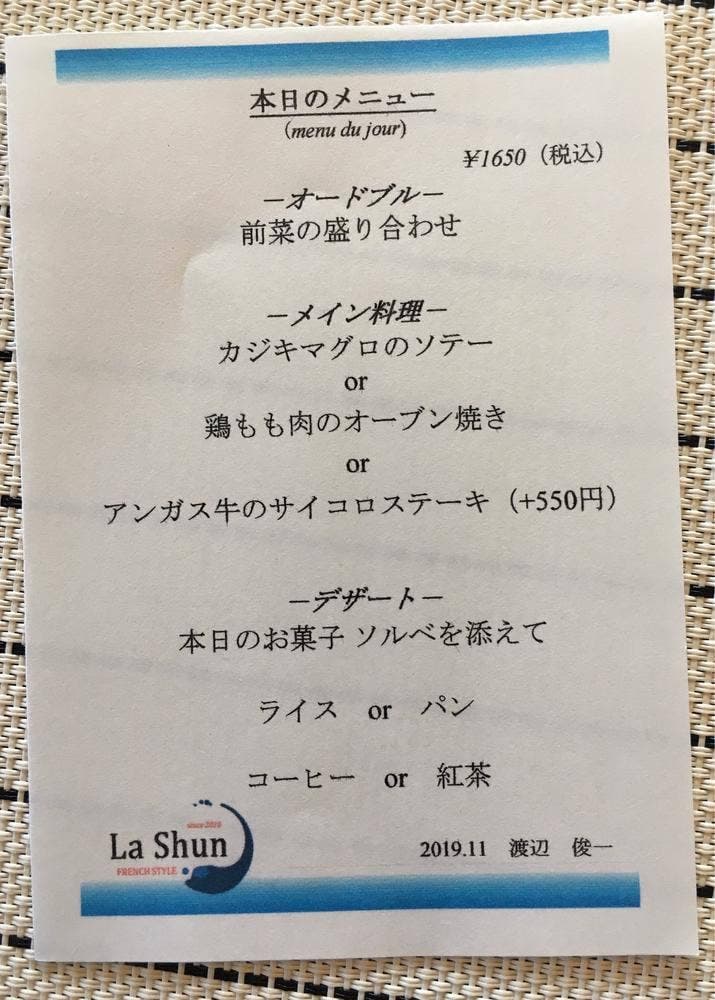 本日のメニュー
(menu du jour)
¥1650（税込）
－オードブル－
前菜の盛り合わせ
－メイン料理－
カジキマグロのソテー
or
鶏もも肉のオーブン焼き
or
アンガス牛のサイコロステーキ（+550円）
－デザート－
本日のお菓子 ソルベを添えて
ライス or パン
コーヒー or 紅茶
since 2019
La Shun
FRENCH STYLE
2019.11 渡辺 俊一